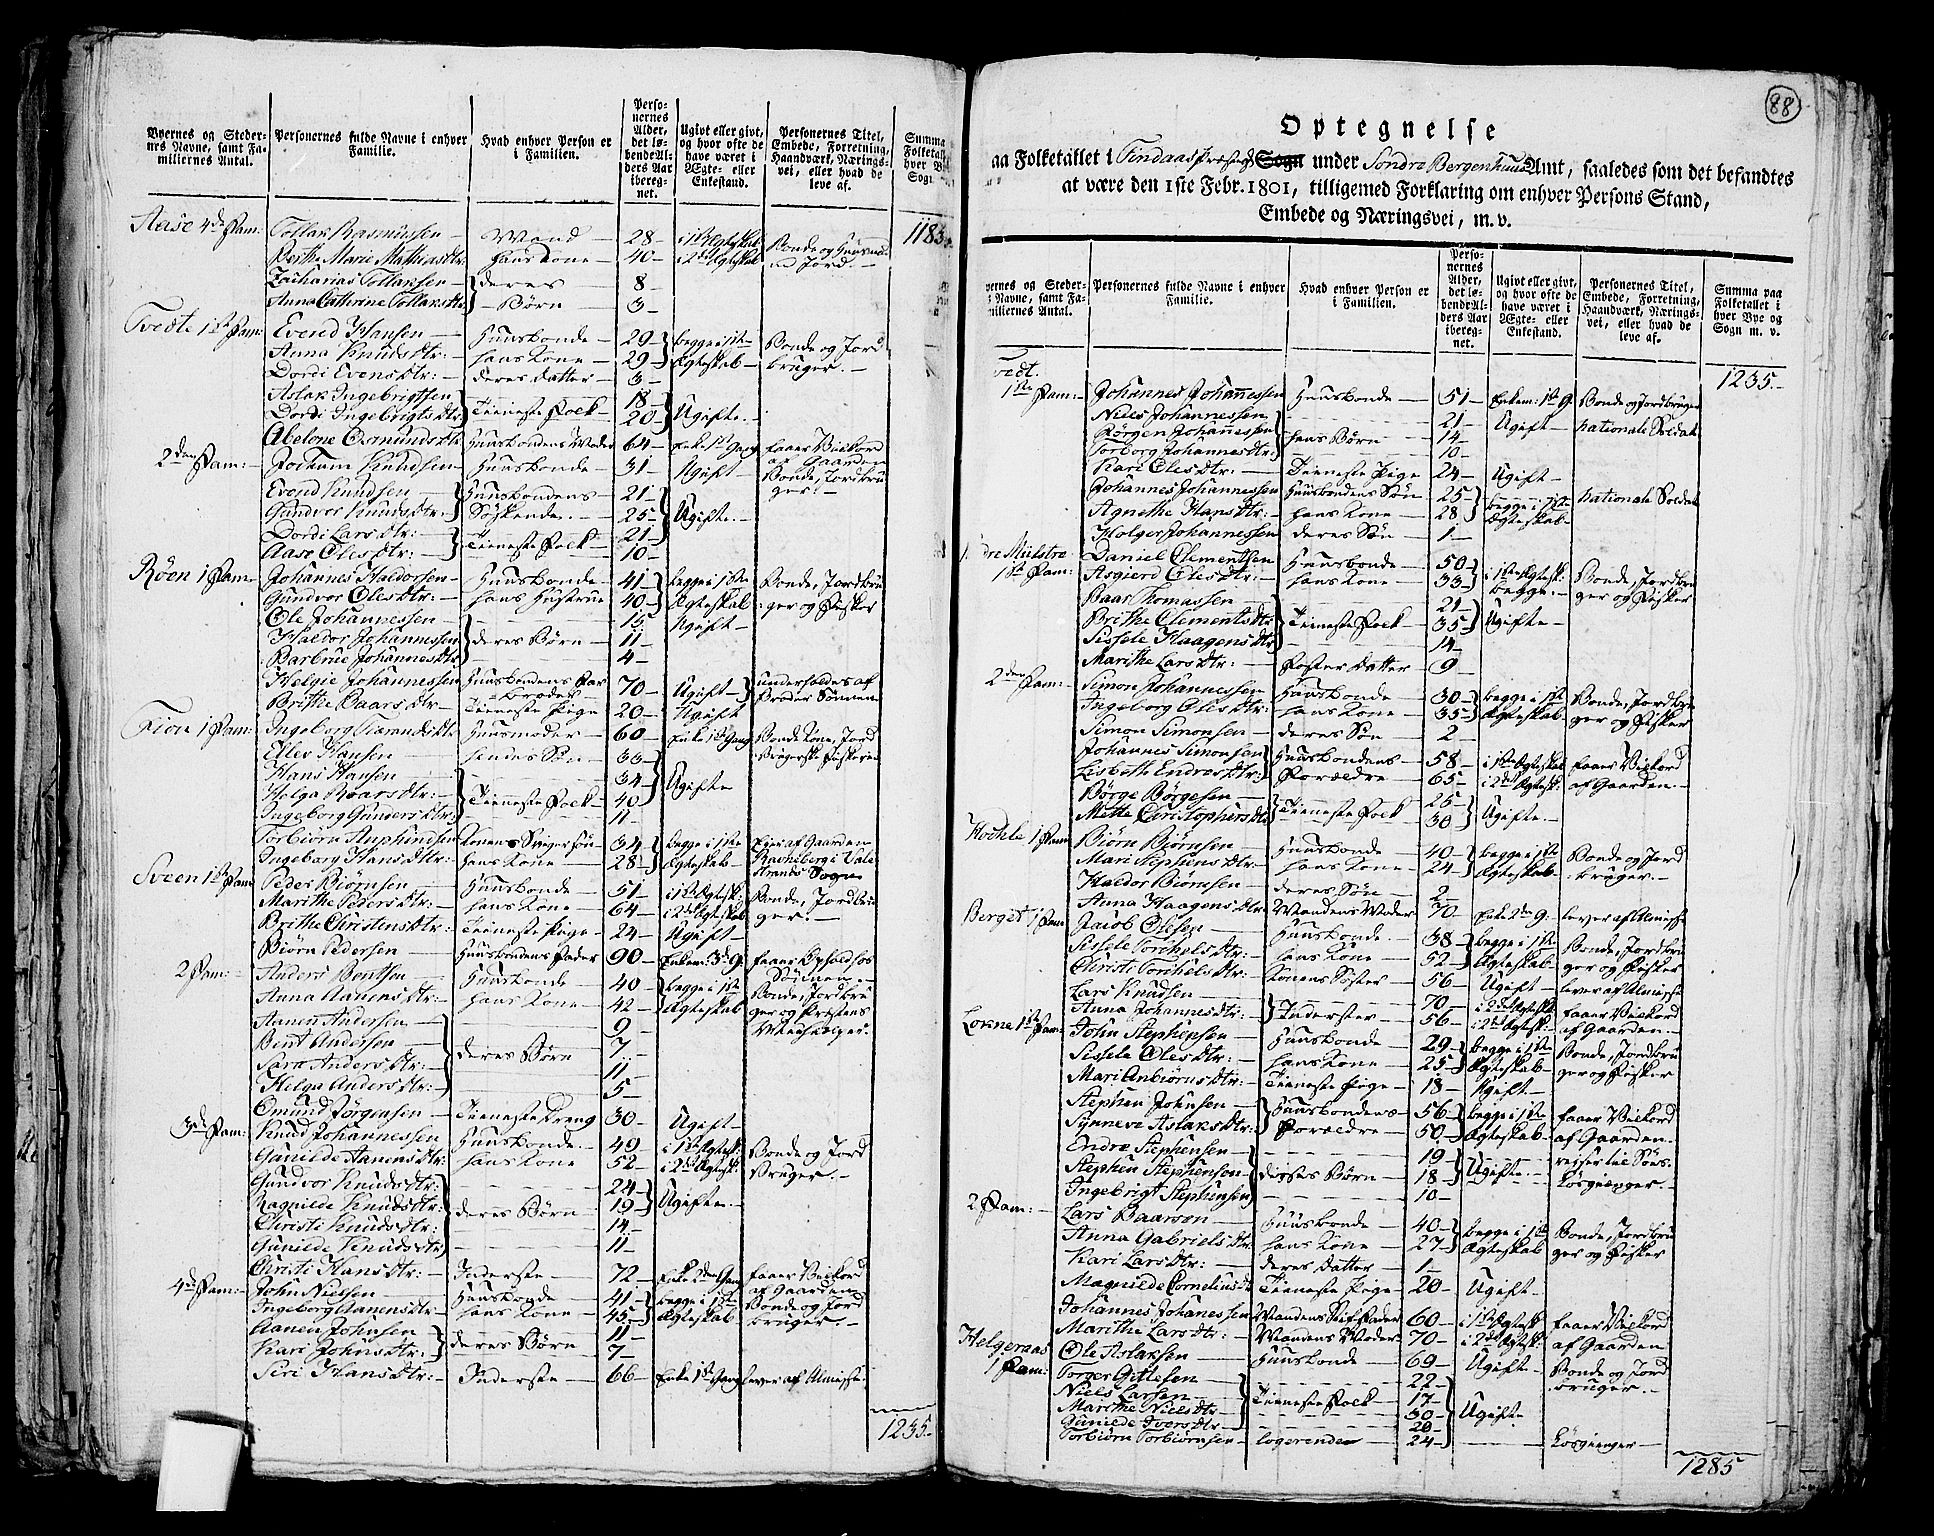 Byernes og Steder-
nes Navne, samt Fa-
miliernes Antal.
Personernes fulde Navne i enhver
Familie.
Hvad enhver Person er
i Familien.
Perso-
nernes
Alder,
det lø-
bende Al-
ders Aar
ibereg-
net.
Ugivt eller givt,
og hvor ofte de
have været i
Ægte- eller
Enkestand.
Personernes Titel,
Embede, Forretning,
Haandværk, Nærings-
vei, eller hvad de
leve af.
Summa
Folketal
hver By
Sogn
Aase 4de Fam: Tollak Rasmussen — Mand — 28 — i 1ste Ægteskab Bonde og Huusmand 1185
Berthe Marie Mathiasdtr: hans Kone — 40 — i 2det Ægteskab med Jord. —
Zacharias Tollaksen — deres 8 —
Anna Cathrine Tollaksdtr — Børn 3 —
Tvedte 1ste Fam: Evend Hansen — Huusbonde — 29 — begge i 1ste Bonde og Jord
Anna Knudsdtr: — hans Kone — 29 — Ægteskab — bruger. —
Dordi Evensdtr: — deres datter — 3 —
Aslak Ingebrigtsen 18 —
Dordi Ingebrigtsdtr Tieneste Folk — 20 — Ugifte. —
Abelone Osmundsdtr Huusbondens Moder 64 — Enke 1ste Gang faaer Vilkord af Gaarden
2den Fam: — Jochum Knudsen — Huusbonde — 31 — Ugift — Bonde, Jordbru
ger. —
Evend Knudsen — Huusbondens — 21 —
Gundvor Knudsdtr: — Søskende. — 25 — Ugifte. —
Dordi Larsdtr: — 21 —
Aase Olesdtr: — Tieneste Folk — 10 —
Røen 1 Fam: Johannes Haldorsen — Huusbonde — 41 — begge i 1ste Bonde, Jordbru
Gundvor Olesdtr: — hans Hustrue 40 — Ægteskab ger og Fisker
Ole Johannessen — 15 Ugift —
Haldor Johannessen deres Børn — 11 —
Barbrue Johannesdtr 4 —
Helgie Johannessen Huusbondens Far
broder 70 — Ugift — underholdes af
Broder Sønnen
Brithe Baarsdtr — Tieneste Pige 20 — Ugift
Fion 1 Fam: Ingeborg Tiærandsdtr Huusmoder — 60 — Enke 1ste Gang Bonde Kone, Jord
Ellev Hansen — hendes Søn — 33 —
Hans Hansen 34 — Ugifte
Helga Roarsdtr: — Tieneste Folk — 40
Ingeborg Gundersdtr: 11 —
Torbiørn Amphindsen Konens Svigersøn 34 begge i 1ste Eier af Gaarden
Ingeborg Hansdtr: — hans Kone — 28 Ægteskab
Strands Sogn
Sveen 1ste Fam Peder Biørnsen — Huusbonde — 51 — i 1ste Ægtesk: Bonde, Jordbru
Marithe Pedersdtr: — hans Kone — 64 — i 2det Ægteskab ger. —
Brithe Christensdtr: — Tieneste Pige — 24 — Ugift —
Biørn Pedersen — Huusbondens Fader 90 — Enkem: 3de G: faaer Ophold hos
Sønnen
2 Fam: — Anders Bentsen — Huusbonde — 40 — begge i 1ste Bonde, Jordbru
Anna Aanensdtr: — hans Kone — 42 — Ægteskab ger og Præstens
Medhielper.
Aanen Andersen — 9 —
Bent Andersen — deres Børn 7 —
Sara Andersdtr: — 11 —
Helga Andersdtr: — 5 —
Omund Jørgensen — Tieneste Dreng 30 — Ugift —
3de Fam: — Knud Johannessen Huusbonde — 49 i 1ste Ægtesk: Bonde og Jord
Gunilde Aanensdtr: hans Kone 52 — i 2det Ægtesk: Bruger. —
Gundvor Knudsdtr: — 24 —
Ragnilde Knudsdtr: deres Børn — 19 — Ugifte. —
Christi Knudsdtr: — 14 —
Gunilde Knudsdtr 11 —
Christi Hansdtr: — Inderste — 72 — Enke 2den Gang faaer Vilkord
af Gaarden
4de Fam: — John Nielsen — Huusbonde 41 — begge i 1ste Bonde og Jord
Ingeborg Aanensdtr — hans Kone — 45 — Ægteskab bruger. —
Aanen Johnsen 11 —
Kari Johnsdtr: — deres Børn — 7 —
Siri Hansdtr: — Inderste — 66 — Enke 1ste Gang lever af Almisse.
1235 —
88
Optegnelse
paa Folketallet i Findaas Præsteg: Sogn under Søndre Bergenhuus Amt, saaledes som det befandtes
at være den 1ste Febr. 1801, tilligemed Forklaring om enhver Persons Stand,
Embede og Næringsvei, m. v.
yernes og Steder-
s Navne, samt Fa-
miliernes Antal.
Personernes fulde Navne i enhver
Familie.
Hvad enhver Person er
i Familien.
Perso-
nernes
Alder,
det lø-
bende Al-
ders Aar
ibereg-
net.
Ugivt eller givt,
og hvor ofte de
have været i
Ægte- eller
Enkestand.
Personernes Titel,
Embede, Forretning,
Haandværk, Nærings-
vei, eller hvad de
leve af.
Summa paa
Folketallet i
hver Bye og
Sogn m. v.
vedt. 1235 —
1ste Fam: — Johannes Johannessen Huusbonde — 51 — Enkem: 1ste G. Bonde og Jordbruger
Niels Johannessen — 21 — Ugift — nationale Soldat
Jørgen Johannessen hans Børn — 14 —
Torborg Johannesdtr: — 10 —
Kari Olesdtr: — Tieneste Pige 24 — Ugift —
Johannes Johannessen Huusbondens Søn 25 begge i 1ste nationale Soldat
Agnethe Hansdtr: — hans Kone — 28 Ægteskab —
Holger Johannessen deres Søn — 1 —
1ste Fam: Daniel Clementsen Huusbonde — 50 i 1ste Ægtesk: Bonde, Jordbru
Asgierd Olesdtr: — hans Kone — 33 begge: — ger og Fisker
Baar Thomassen — 21 —
Brithe Clementsdtr Tieneste Folk — 35 Ugifte —
Sissele Haagensdtr — 14 —
Marithe Larsdtr: — Foster Datter — 9 —
2den Fam: — Simon Johannessen Huusbonde — 30 — begge i 1ste Bonde, Jordbru
Ingeborg Olesdtr: — hans Kone — 35 — Ægteskab — ger og Fisker
Simon Simonsen — deres Søn — 2
Johannes Simonsen Huusbondens — 58 — i 1ste Ægteskab faaer Vilkord
Lisbeth Endresdtr: Forældre — 65 — i 2det Ægtesk: af Gaarden. —
Børge Børgesen — 25 —
Mette Christophersdtr Tieneste Folk 30 Ugifte. —
1 Fam Biørn Biørnsen — Huusbonde 40 — begge i 1ste Bonde og Jord
Mari Stephensdtr: — hans Kone — 24 — Ægteskab — bruger. —
Haldor Biørnsen — deres Søn — 2 —
Anna Haagensdtr Mandens Moder 70 — Enke 2den G: lever af Almisse
Berget 1 Fam Jacob Olesen — Huusbonde — 38 — begge i 1ste Bonde, Jordbru
Sissele Torchelsdtr: hans Kone — 52 — Ægteskab — ger og Fisker
Christi Torchelsdtr: — Konens Søster — 56 — Ugift — lever af Almisse
Lars Knudsen — 70 — i 2det Ægteskab faaer Vilkord
Anna Johannesdtr: — Inderster — 56 — i 2det Ægtesk: af Gaarden. —
1ste Fam: John Stephensen — Huusbonde — 29 — begge i 1ste Bonde, Jordbru
Sissele Olesdtr: — hans Kone — 25 — Ægteskab — ger og Fisker
Mari Anbiørnsdtr: — Tieneste Pige — 18 — Ugift —
Stephen Johnsen — Huusbondens — 56 — begge i 1ste faaer Vilkord
Synneve Aslaksdtr: Forældre — 50 — Ægteskab — af Gaarden. —
Endre Stephensen — 19 — reiser til Søes.
Stephen Stephensen deres Børn — 18 — Ugifte. — Løsgienger. —
Ingebrigt Stephensen — 10 —
2 Fam: — Lars Baarson — Huusbonde — 40 — begge i 1ste Bonde, Jordbru
Anna Gabrielsdtr: hans Kone — 27 Ægteskab ger og Fisker
Kari Larsdtr: — deres Datter — 1 —
Magnilde Corneliusdtr Tieneste Pige — 20 — Ugift —
Johannes Johannessen Mandens Stif Fader 60 — i 1ste Ægtesk faaer Vilkord
Marithe Larsdtr: — Mandens Moder 70 — i 2det Ægtesk: af Gaarden
Helgeraas
1 Fam: Ole Aslaksen — Huusbonde — 69 — Ugift — Bonde og Jord
bruger. —
Torger Gittlesen — 22 —
Niels Larsen — Tieneste Folk — 17 —
Marithe Nielsdtr — 30 — Ugifte
Gunilde Iversdtr — 20 —
Torbiørn Torbiørnsen — logerende — 24 — Løsgienger —
1285